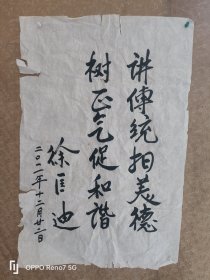 讲傳统拍美德
树正气促和谐
徐匡迪
二〇一一年十二月廿二日
SHOT ON OPPO Reno7 5G